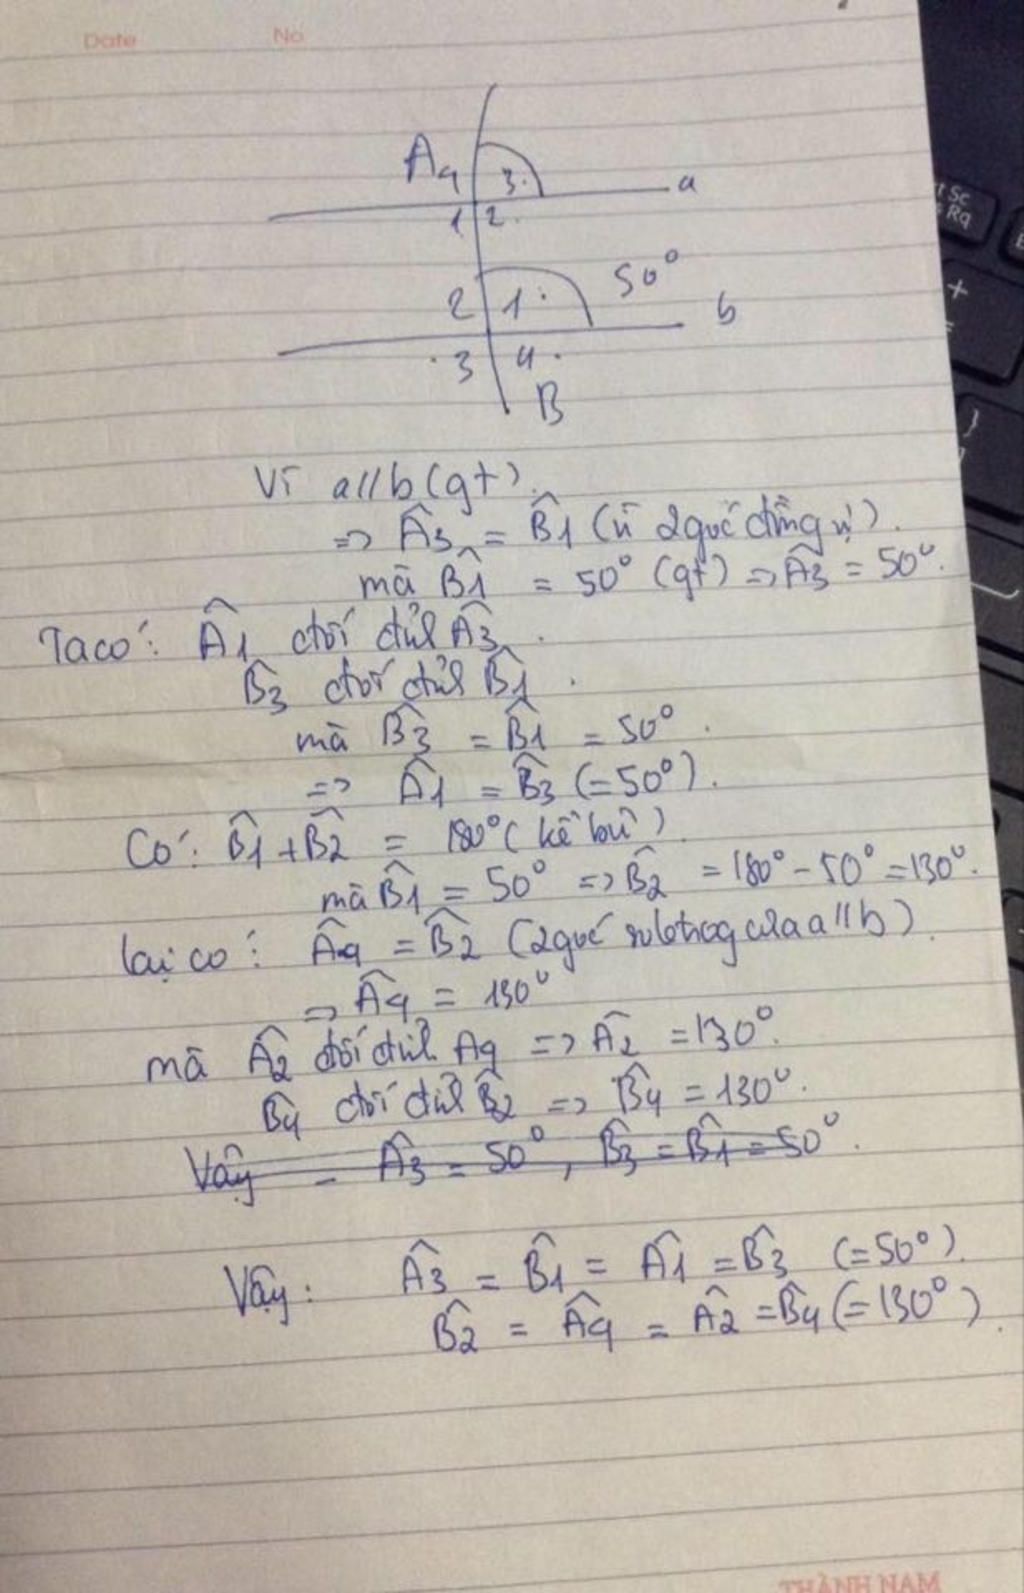 Date No
A4 3 a
1 2
2 1 50° b
3 4
B
Vì a//b (gt)
=> Â3 = B̂1 (vì 2 góc đồng vị).
mà B̂1 = 50° (gt) => Â3 = 50°.
Ta có: Â1 đối đỉnh Â3.
B̂3 đối đỉnh B̂1.
mà B̂3 = B̂1 = 50°.
=> Â1 = B̂3 (=50°).
Có: B̂1 + B̂2 = 180° (kề bù)
mà B̂1 = 50° => B̂2 = 180° - 50° = 130°.
lại có: Â4 = B̂2 (2 góc của a//b)
=> Â4 = 130°
mà Â2 đối đỉnh A4 => Â2 = 130°.
B̂4 đối đỉnh B̂2 => B̂4 = 130°.
Vậy = Â3 = 50°, B̂3 = B̂1 = 50°.
Vậy: Â3 = B̂1 = Â1 = B̂3 (=50°).
B̂2 = Â4 = Â2 = B̂4 (=130°).
THÀNH NAM